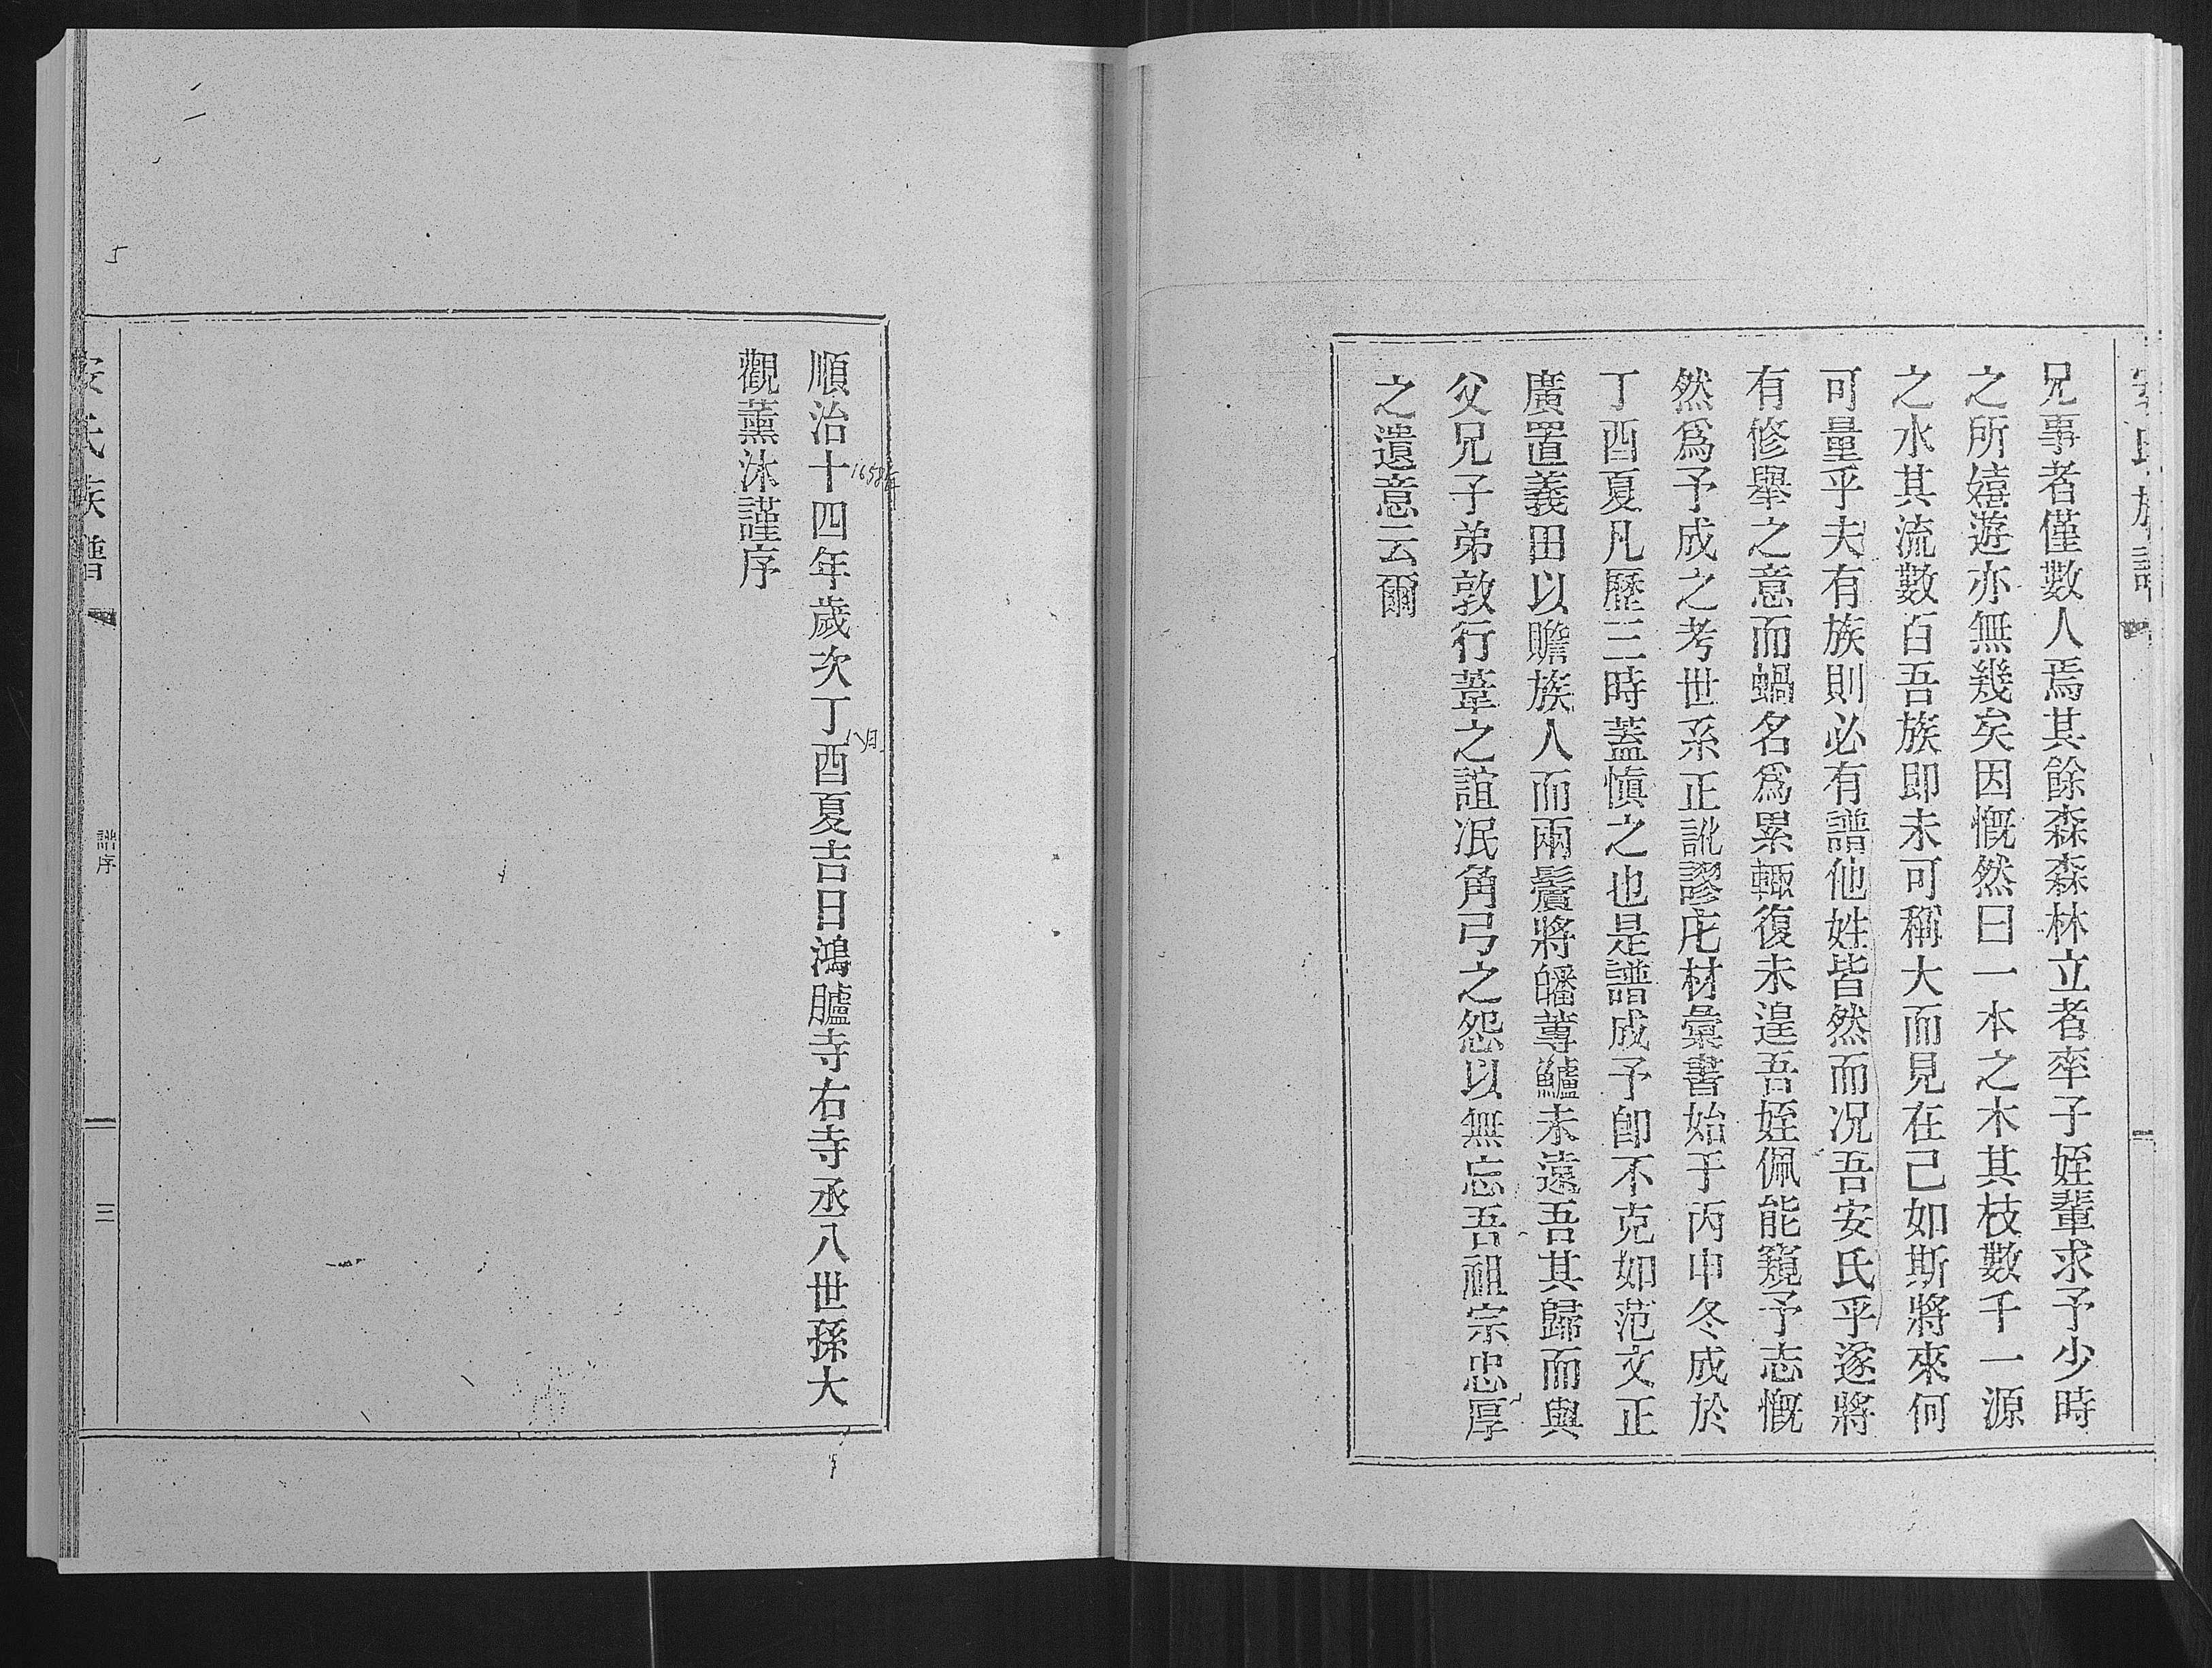 安氏族譜
兄事者僅數人焉其餘森森林立者率子姪輩求予少時
之所嬉遊亦無幾矣因慨然曰一本之木其枝數千一源
之水其流數百吾族即未可稱大而見在己如斯將來何
可量乎夫有族則必有譜他姓皆然而况吾安氏乎遂將
有修舉之意而蝸名爲累輒復未遑吾姪佩能窺予志慨
然爲予成之考世系正訛謬庀材彙書始于丙申冬成於
丁酉夏凡歷三時蓋愼之也是譜成予卽不克如范文正
廣置義田以贍族人而兩鬢將皤蓴鱸未遠吾其歸而與
父兄子弟敦行葦之誼冺角弓之怨以無忘吾祖宗忠厚
之遺意云爾
順治十四年歲次丁酉夏吉日鴻臚寺右寺丞八世孫大
1658年
八月
觀薰沐謹序
安氏族譜
譜序
三